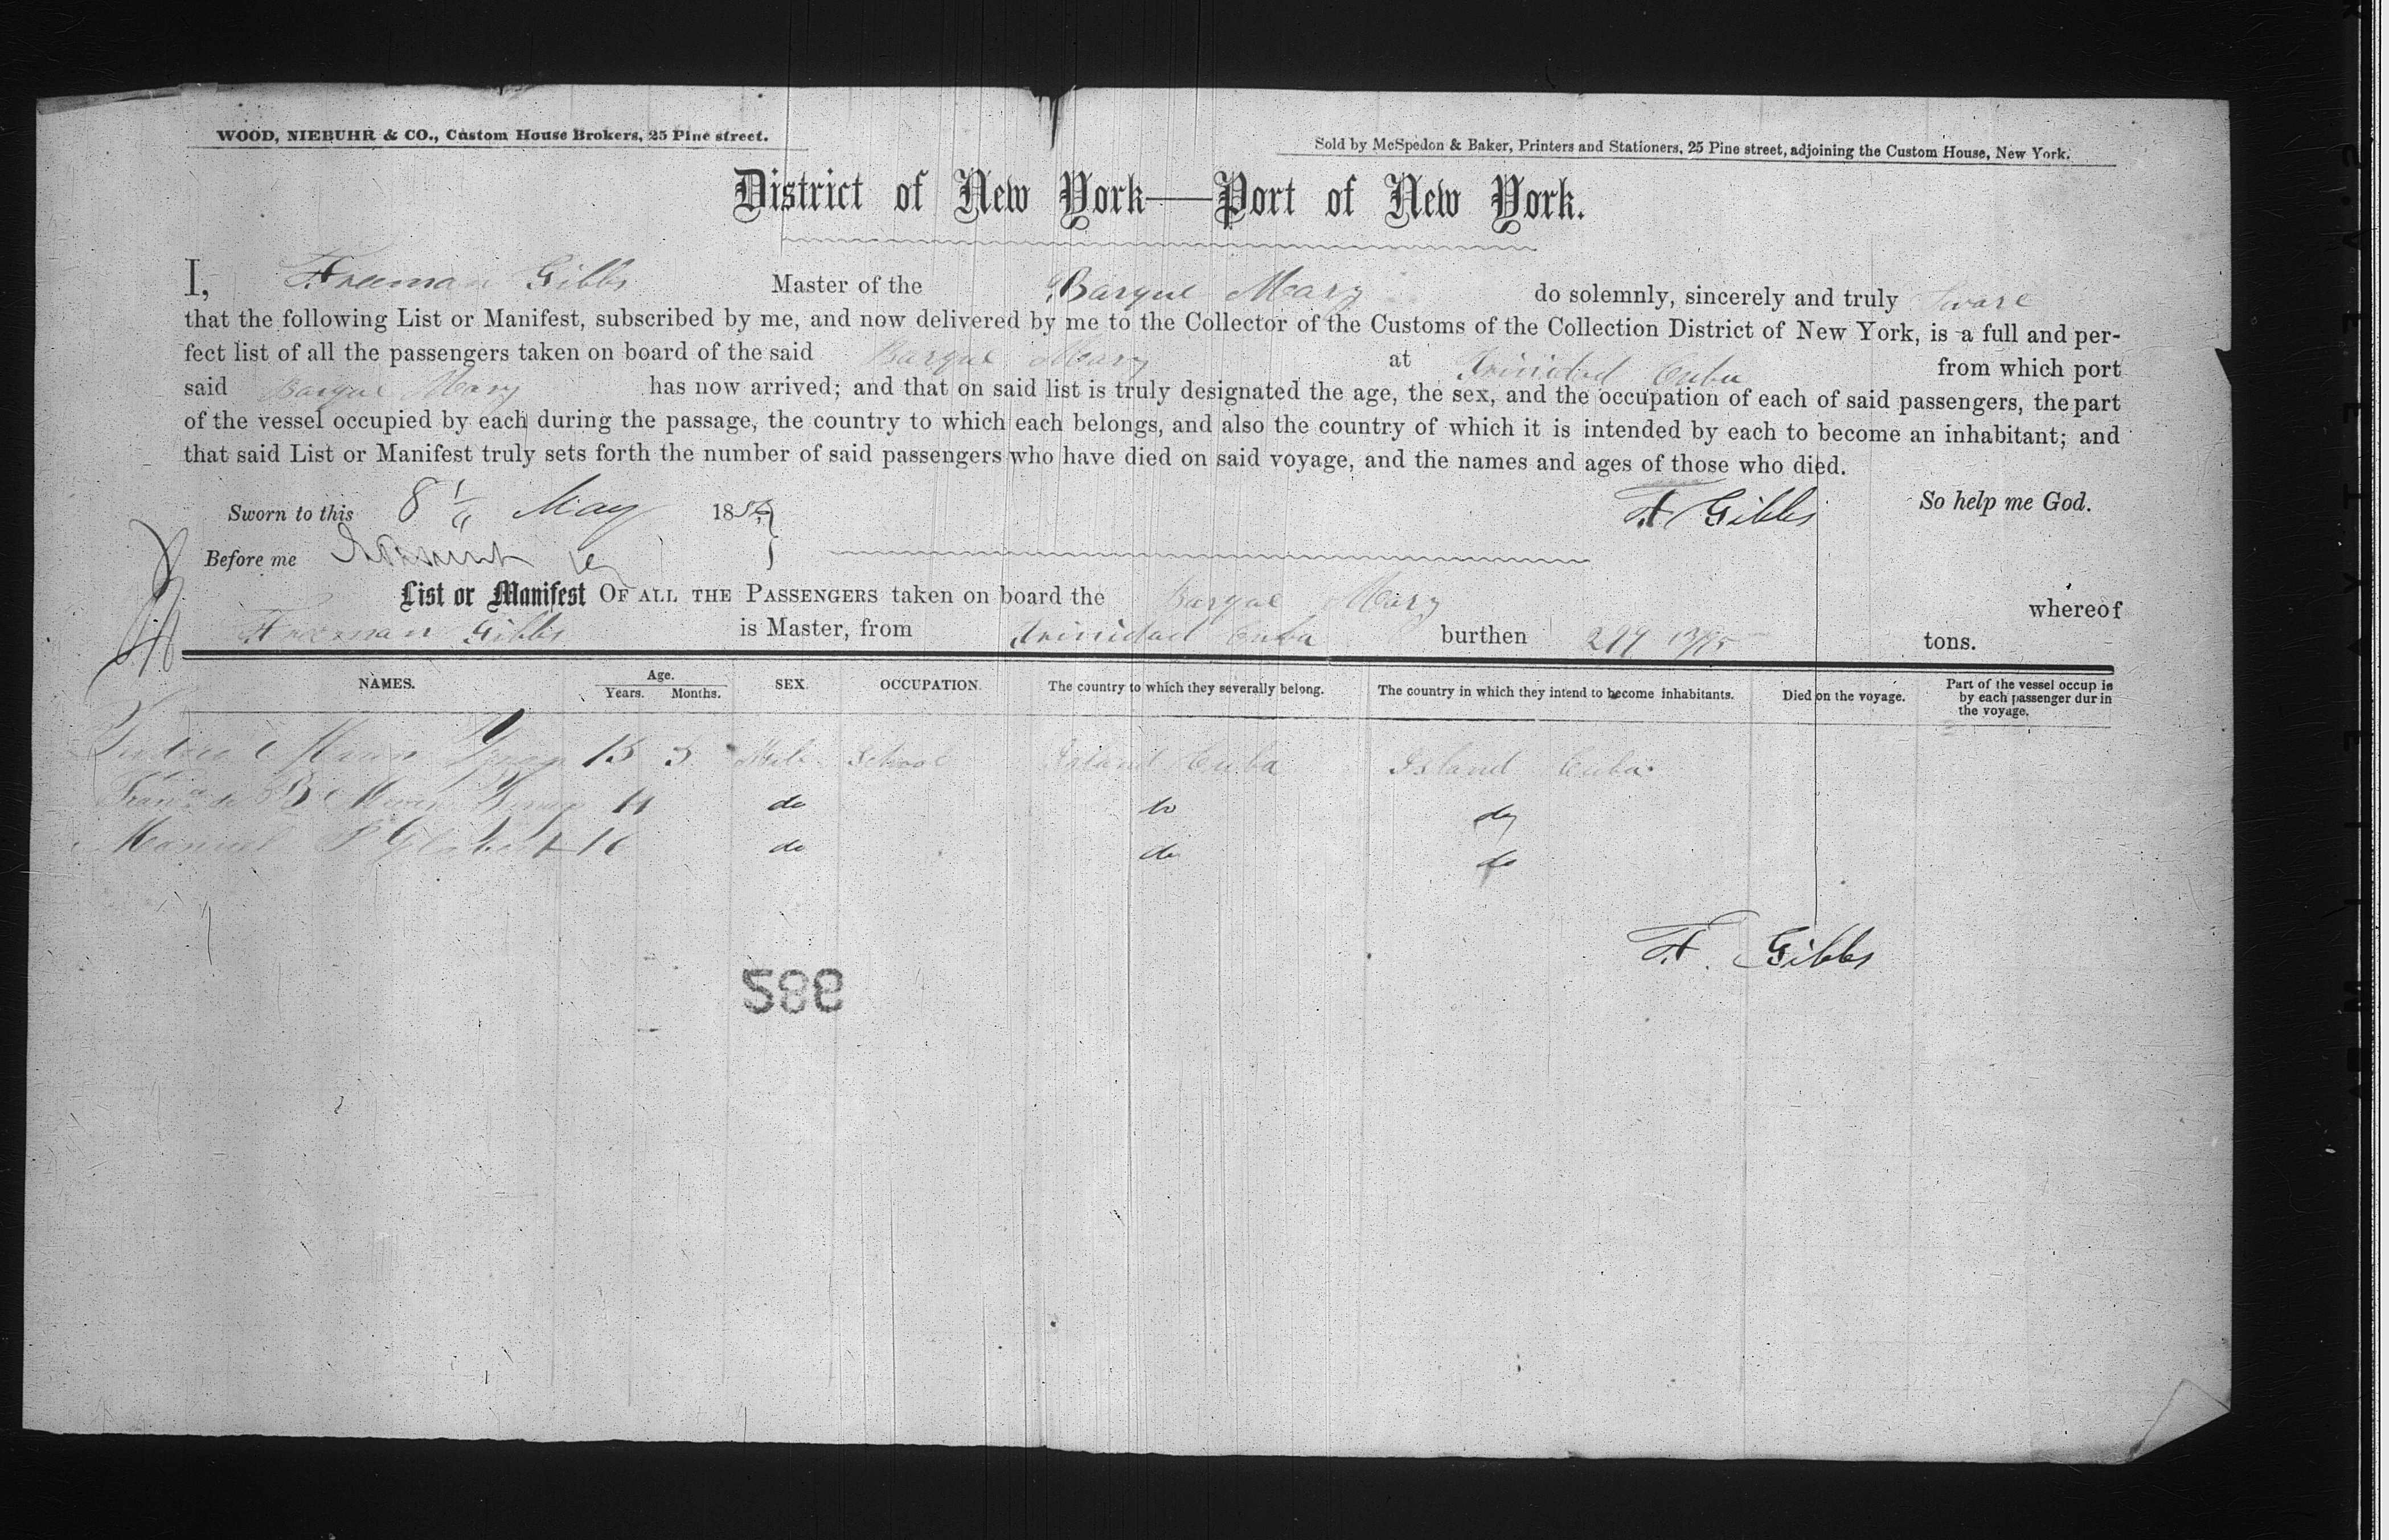 WOOD, NIEBUHR & CO., Custom House Brokers, 25 Pine street.
Sold by McSpedon & Baker, Printers and Stationers, 25 Pine street, adjoining the Custom House, New York.
District of New York—Port of New York.
I, Freeman Gibbs Master of the Barque Mary do solemnly, sincerely and truly sware
that the following List or Manifest, subscribed by me, and now delivered by me to the Collector of the Customs of the Collection District of New York, is a full and per-
fect list of all the passengers taken on board of the said Barque Mary at Trinidad Cuba from which port
said Barque Mary has now arrived; and that on said list is truly designated the age, the sex, and the occupation of each of said passengers, the part
of the vessel occupied by each during the passage, the country to which each belongs, and also the country of which it is intended by each to become an inhabitant; and
that said List or Manifest truly sets forth the number of said passengers who have died on said voyage, and the names and ages of those who died.
Sworn to this 8 May 185 F Gibbs So help me God.
Before me
List or Manifest OF ALL THE PASSENGERS taken on board the Barque Mary whereof
Freeman Gibbs is Master, from Trinidad Cuba burthen 299 tons.
NAMES. Age. Years. Months. SEX. OCCUPATION. The country to which they severally belong. The country in which they intend to become inhabitants. Died on the voyage. Part of the vessel occup is by each passenger dur in the voyage.
15 5 Male School Island Cuba Island Cuba
11 do do do
Manuel 16 do do do
F. Gibbs
588